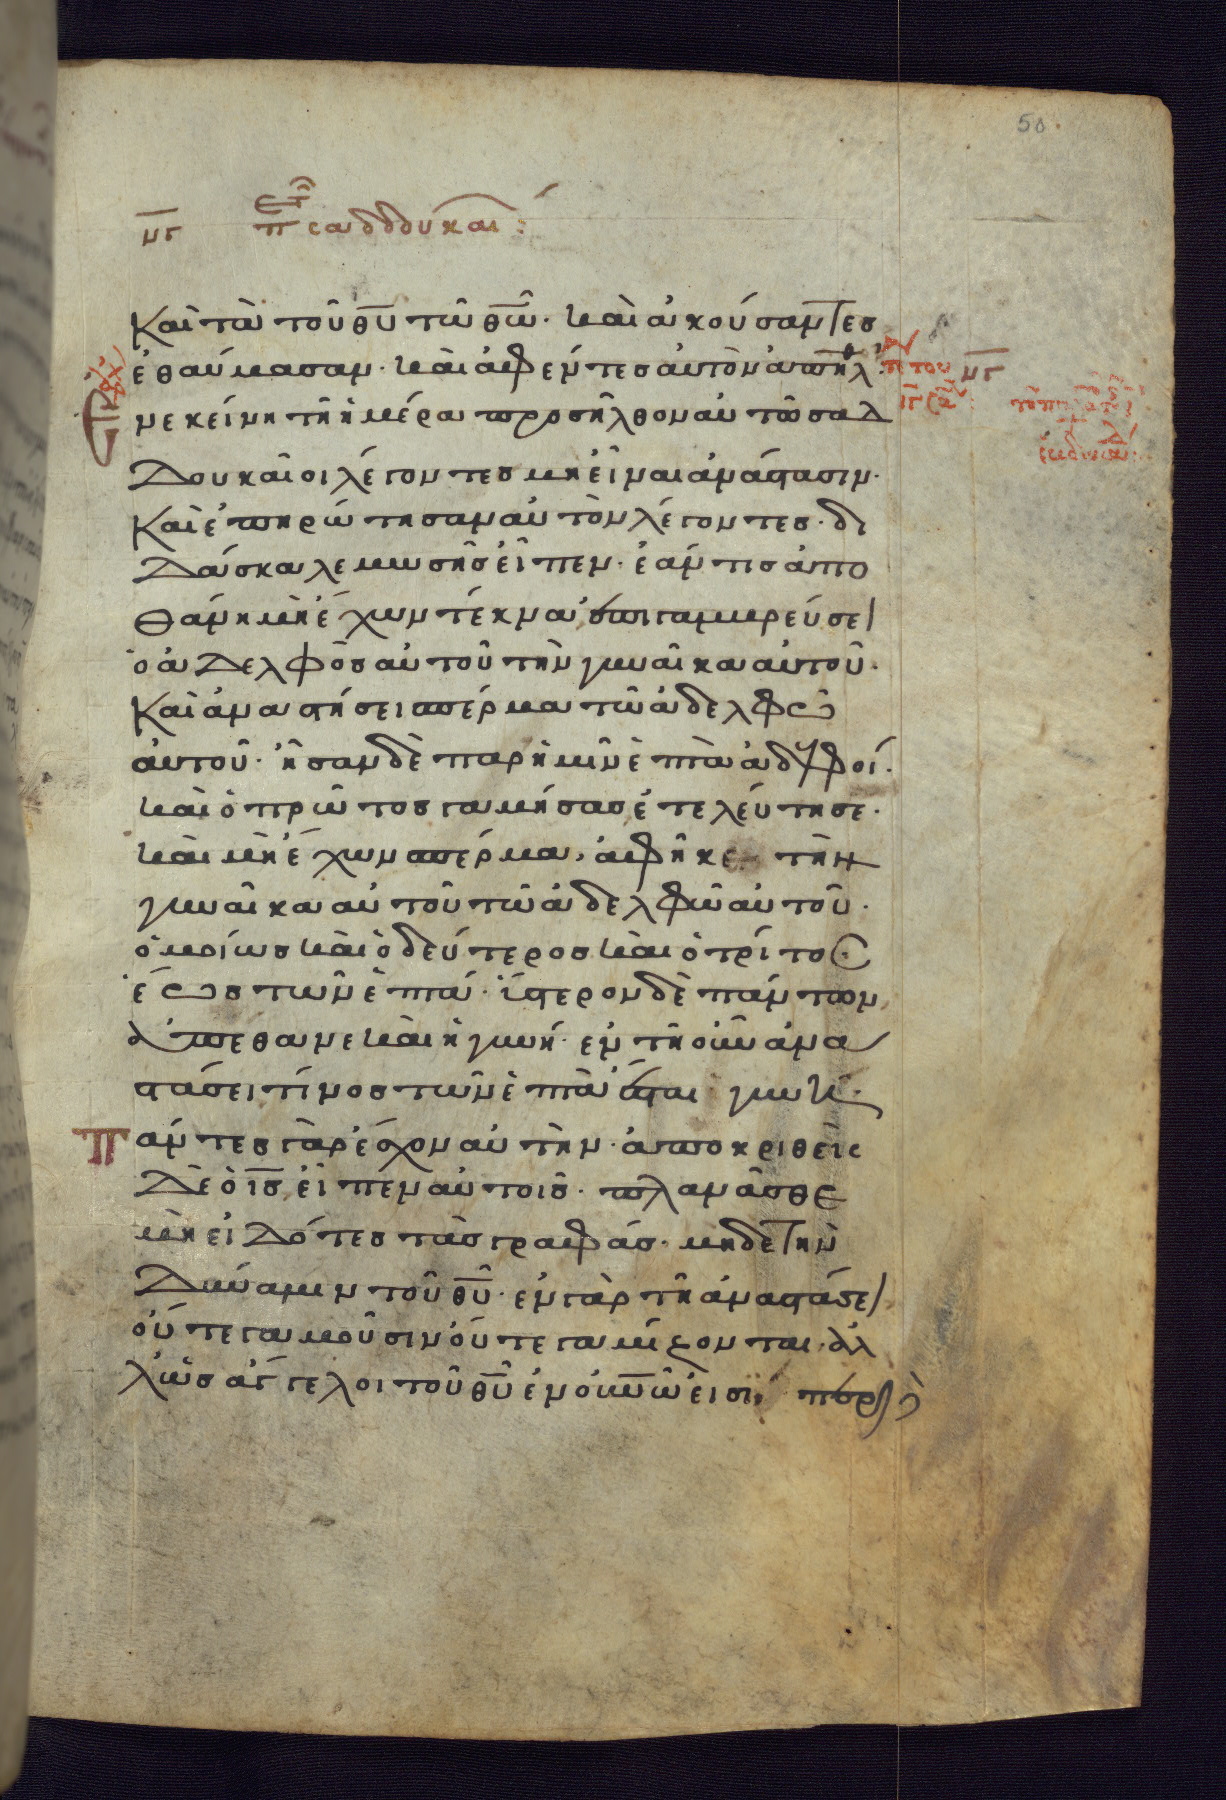 50
μγ πε σαδδουκαι:
Καὶ τὰ τοῦ θυ τῶ θω. και ἀκούσαντες
ἐθαύμασαν. και ἀφέντες αὐτὸν ἀπῆλθο
ν ἐκείνη τῆ ἡμέρα προσῆλθον αὐτῶ σαδ
δουκαῖοι λέγοντες μὴ εἶναι ἀνάστασιν.
Καὶ ἐπηρώτησαν αὐτὸν λέγοντες. δι
δάσκαλε μωσῆς εἶπεν. ἐάν τις ἀπο
θάνη μὴ ἔχων τέκνα ἐπιγαμβρεύσει
ὁ ἀδελφὸς αὐτοῦ τὴν γυναῖκα αὐτοῦ.
Καὶ ἀναστήσει σπέρμα τῶ ἀδελφῶ
αὐτοῦ. ἦσαν δὲ παρ ἡμῖν ἑπτὰ ἀδελφοί.
και ὁ πρῶτος γαμήσας ἐτελεύτησε.
και μὴ ἔχων σπέρμα, ἀφῆκε τὴν
γυναῖκα αὐτοῦ τῶ ἀδελφῶ αὐτοῦ.
ὁμοίως και ὁ δεύτερος και ὁ τρίτος
ἕως τῶν ἑπτά. ὕστερον δὲ πάντων
ἀπέθανε και ἡ γυνή. ἐν τῆ οὖν ἀνα
στάσει τίνος τῶν ἑπτὰ ἔσται γυνή.
Πάντες γὰρ ἔσχον αὐτὴν. ἀποκριθεὶς
δὲ ὁ ις εἶπεν αὐτοῖς. πλανᾶσθε
μὴ εἰδότες τὰς γραφάς. μηδὲ τὴν
δύναμιν τοῦ θυ. ἐν γὰρ τῆ ἀναστάσει
οὔτε γαμοῦσιν οὔτε γαμίζονται. ἀλ
λ ὡς ἄγγελοι τοῦ θυ ἐν ουνω εἰσι. περὶ